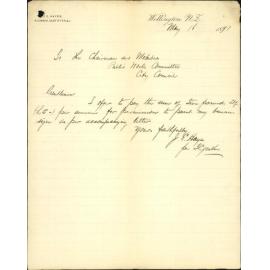 Wellington N.Z.
May 16 1891
To the Chairman and Members
Public Works Committee
City Council
Gentlemen
I offer to pay the sum of Two pounds
per annum for permission to paint my
sign as per accompanying letter
Yours faithfully